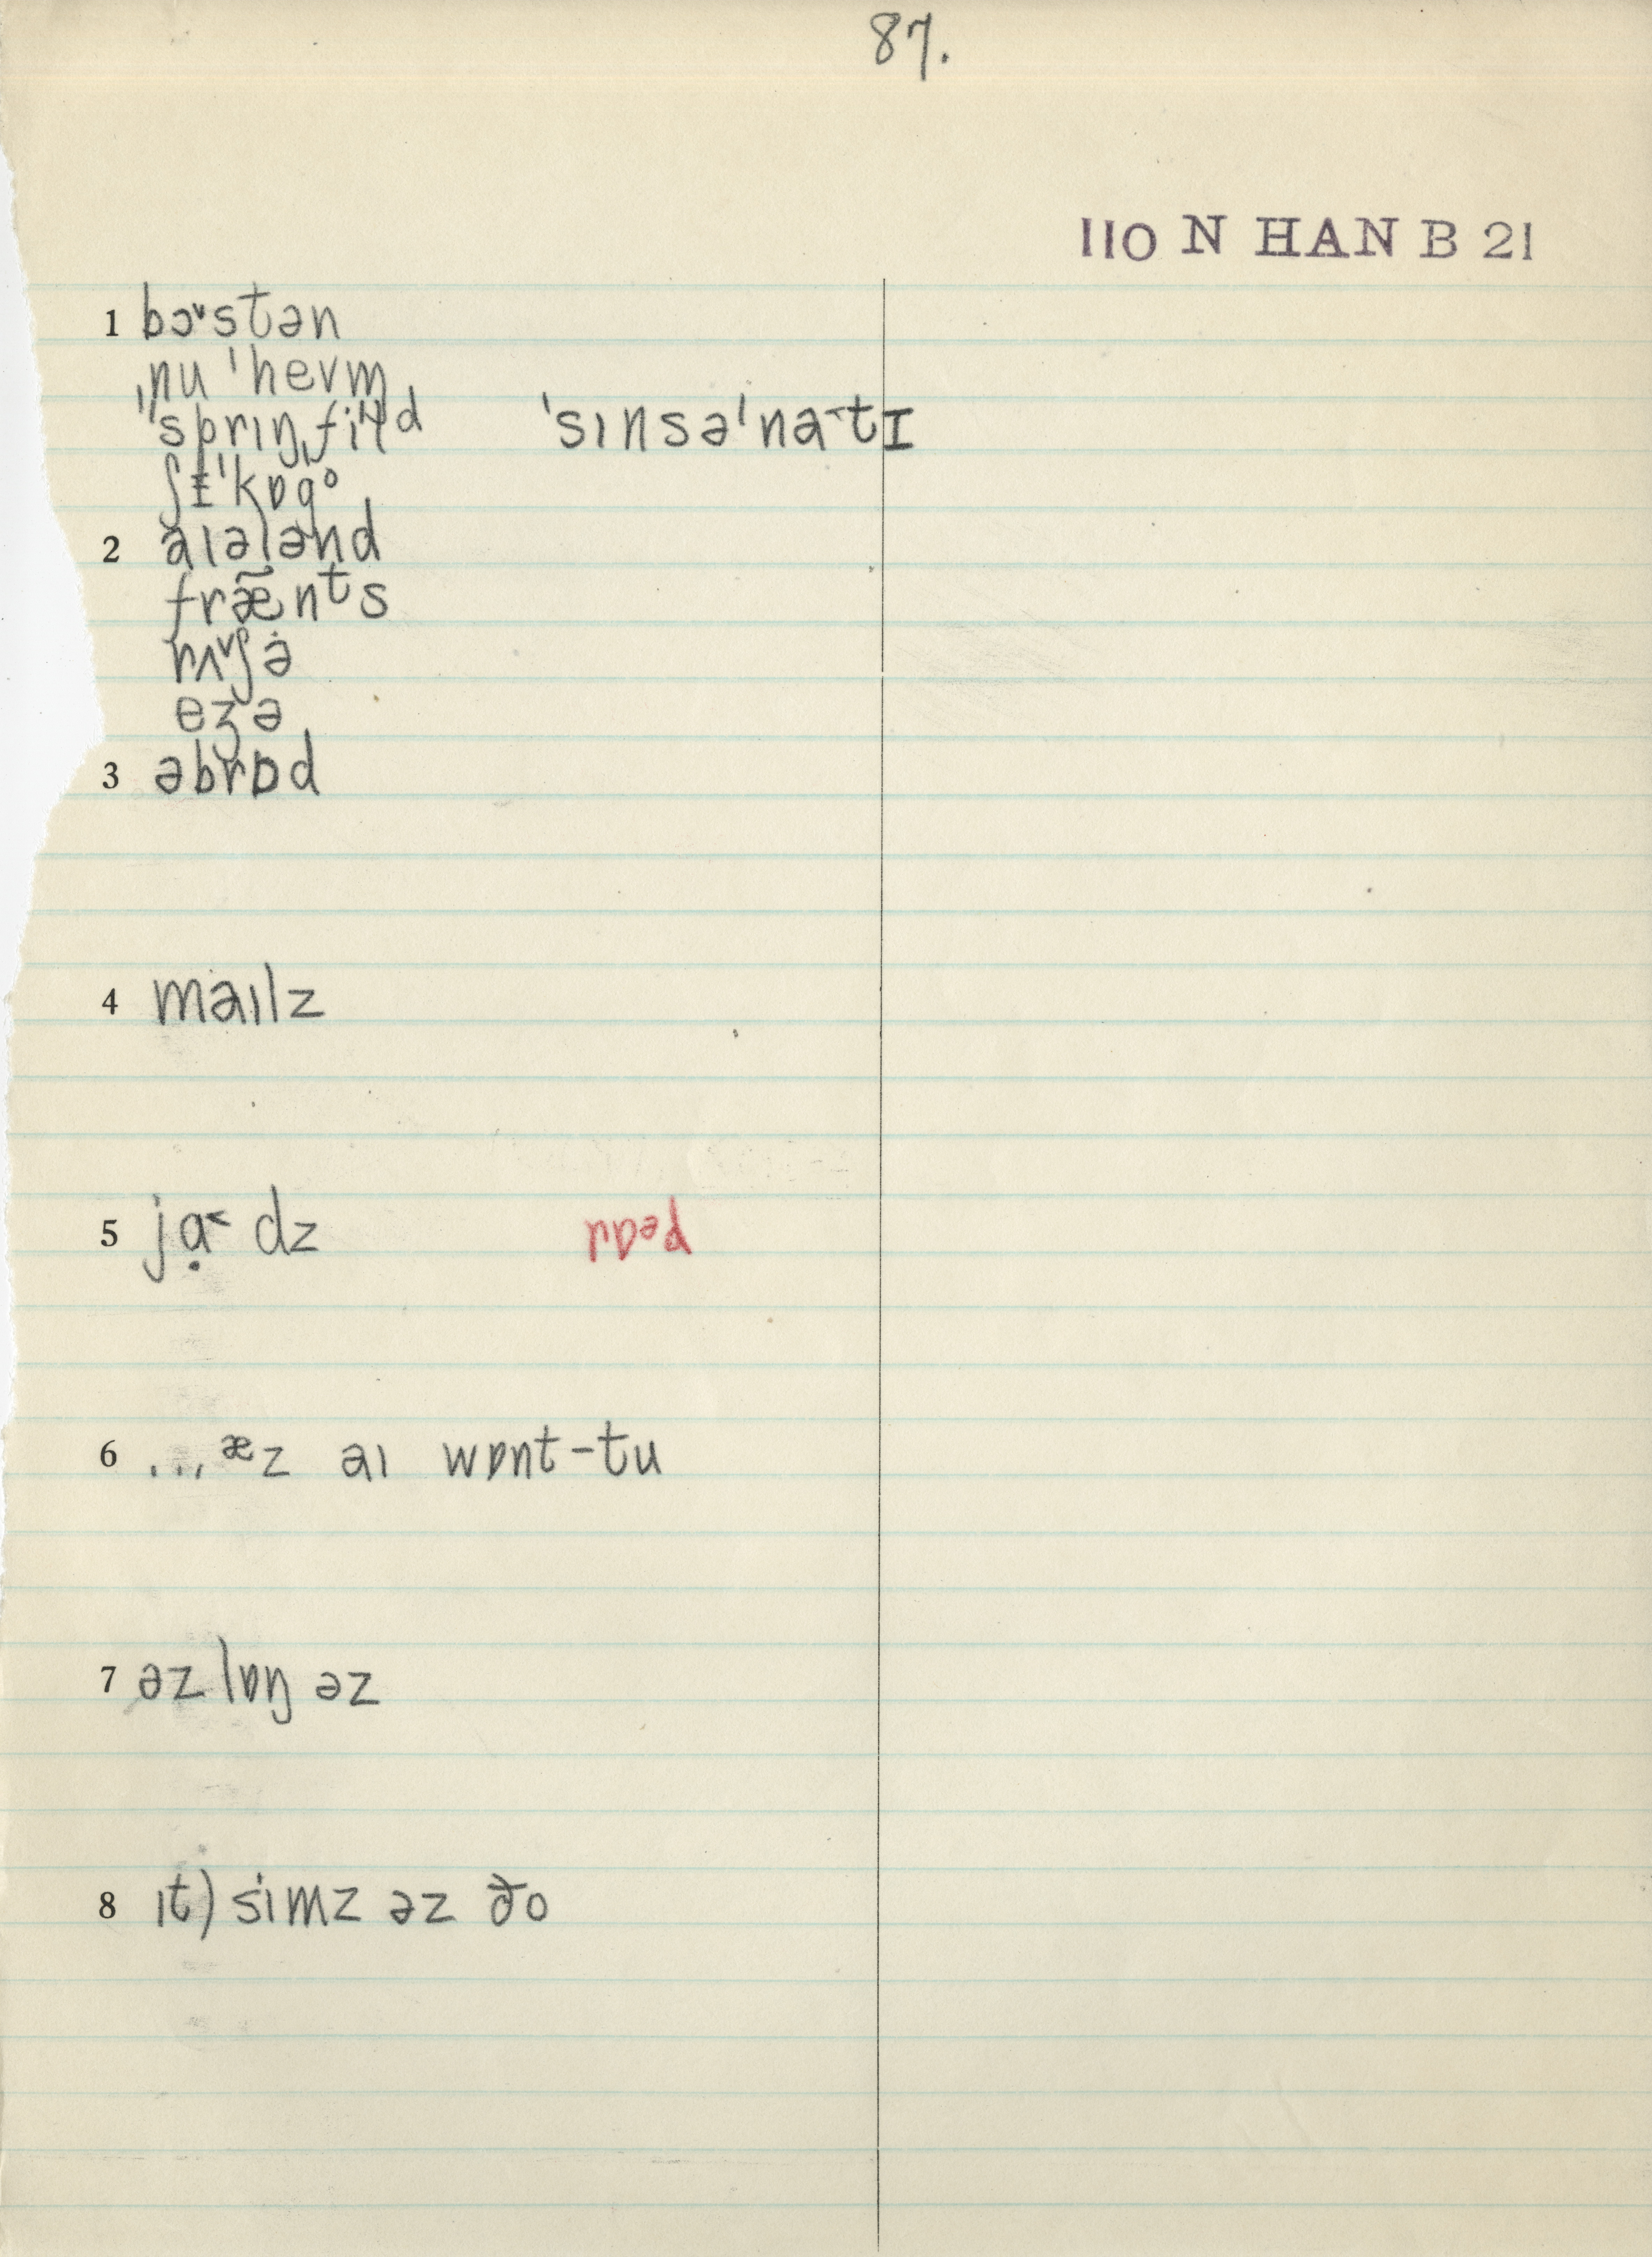 87.
110 N HAN B 21
1 bɔ˅stən
ˌnu ˈhevm
ˈˈsprɪŋˌfiɫd ˈsɪnsəˈna˂tɪ
ʃɪ̵ˈkɒgᵒ
2 aɪələnd
fræ̃nᵗs
rʌ˅ʃə
eʒə
3 əbrɒd
4 maɪlz
5 jɑ̣˂ dz
6 ...æz aɪ wɒnt-tu
7 əz lɒŋ əz
8 ɪt) simz əz ðo